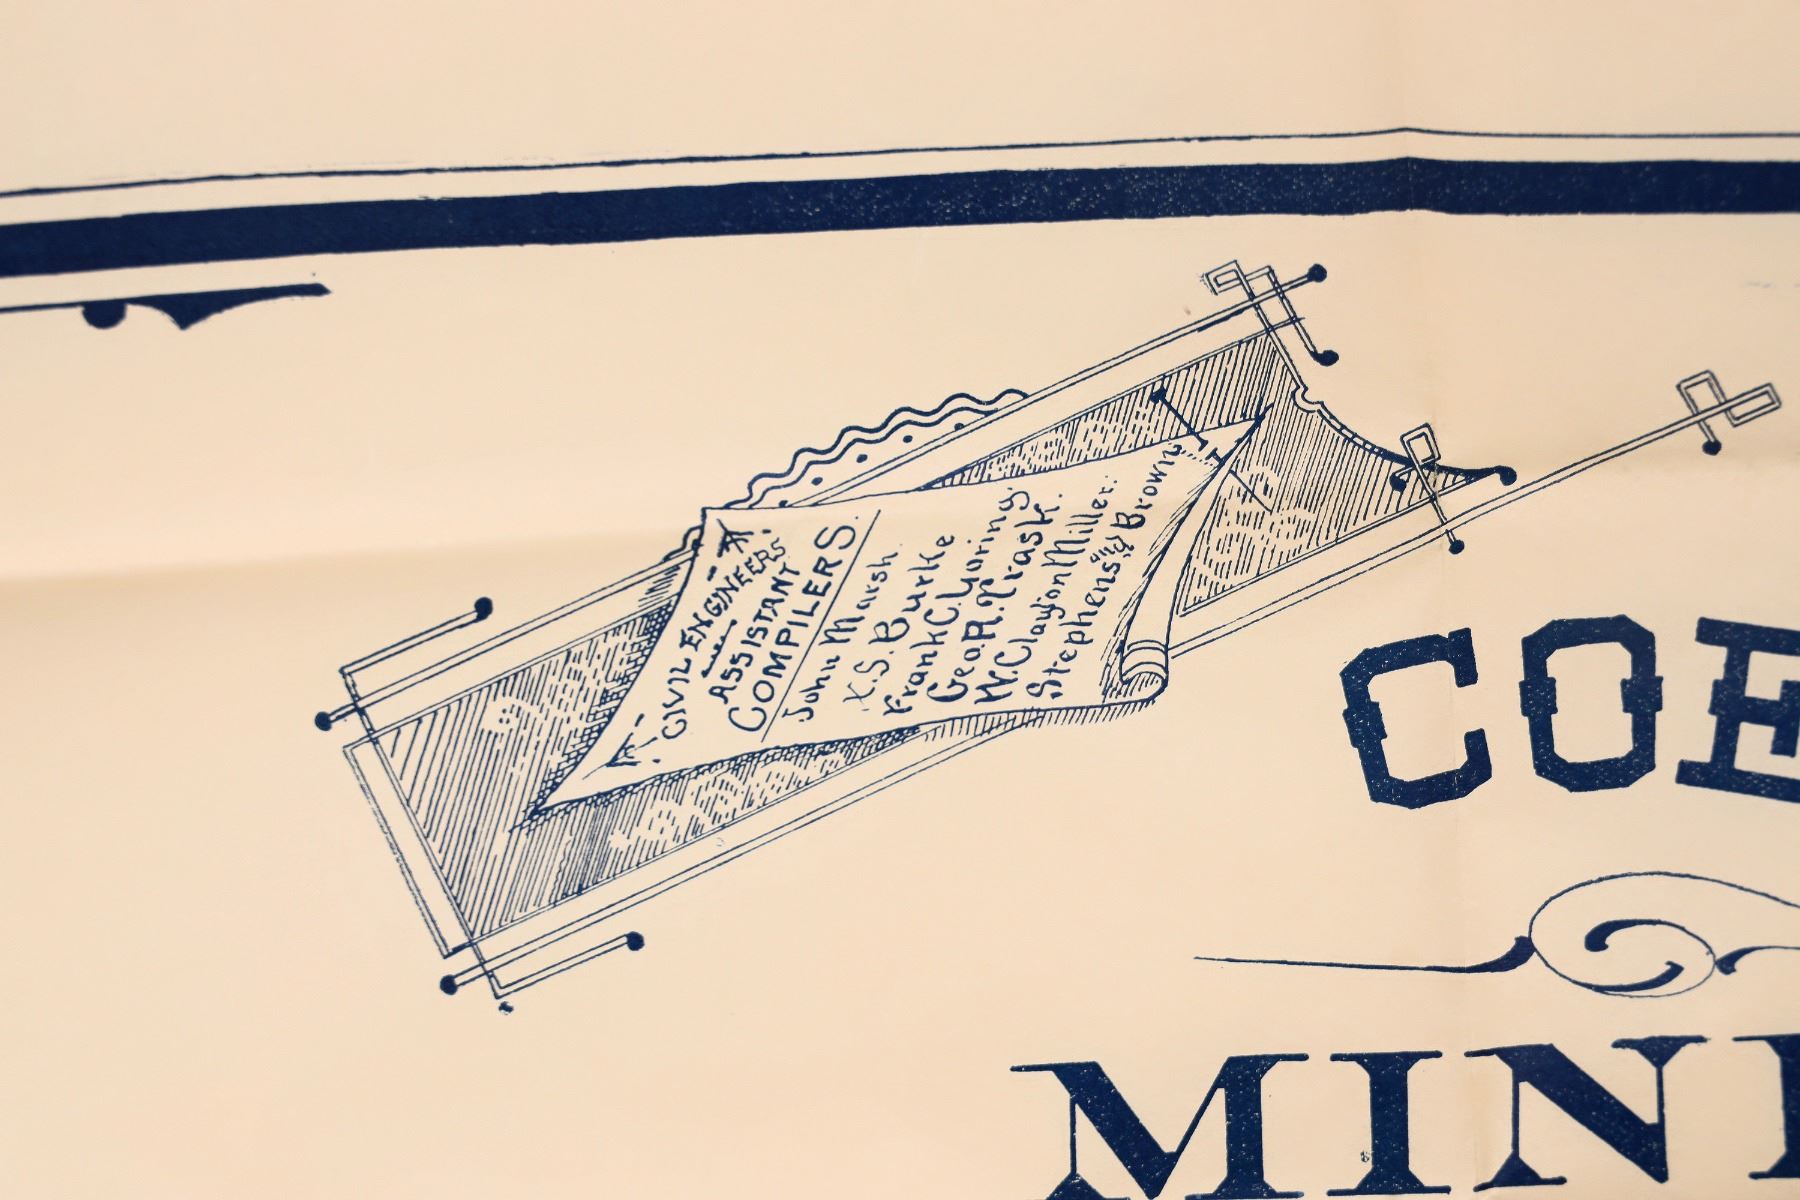 CIVIL ENGINEERS
ASSISTANT
COMPILERS.
John Marsh
K.S. Burke
Frank C. Loring.
Geo. R. Trask.
W. Clayton Miller.
Stephens and Brown
COE
MINI